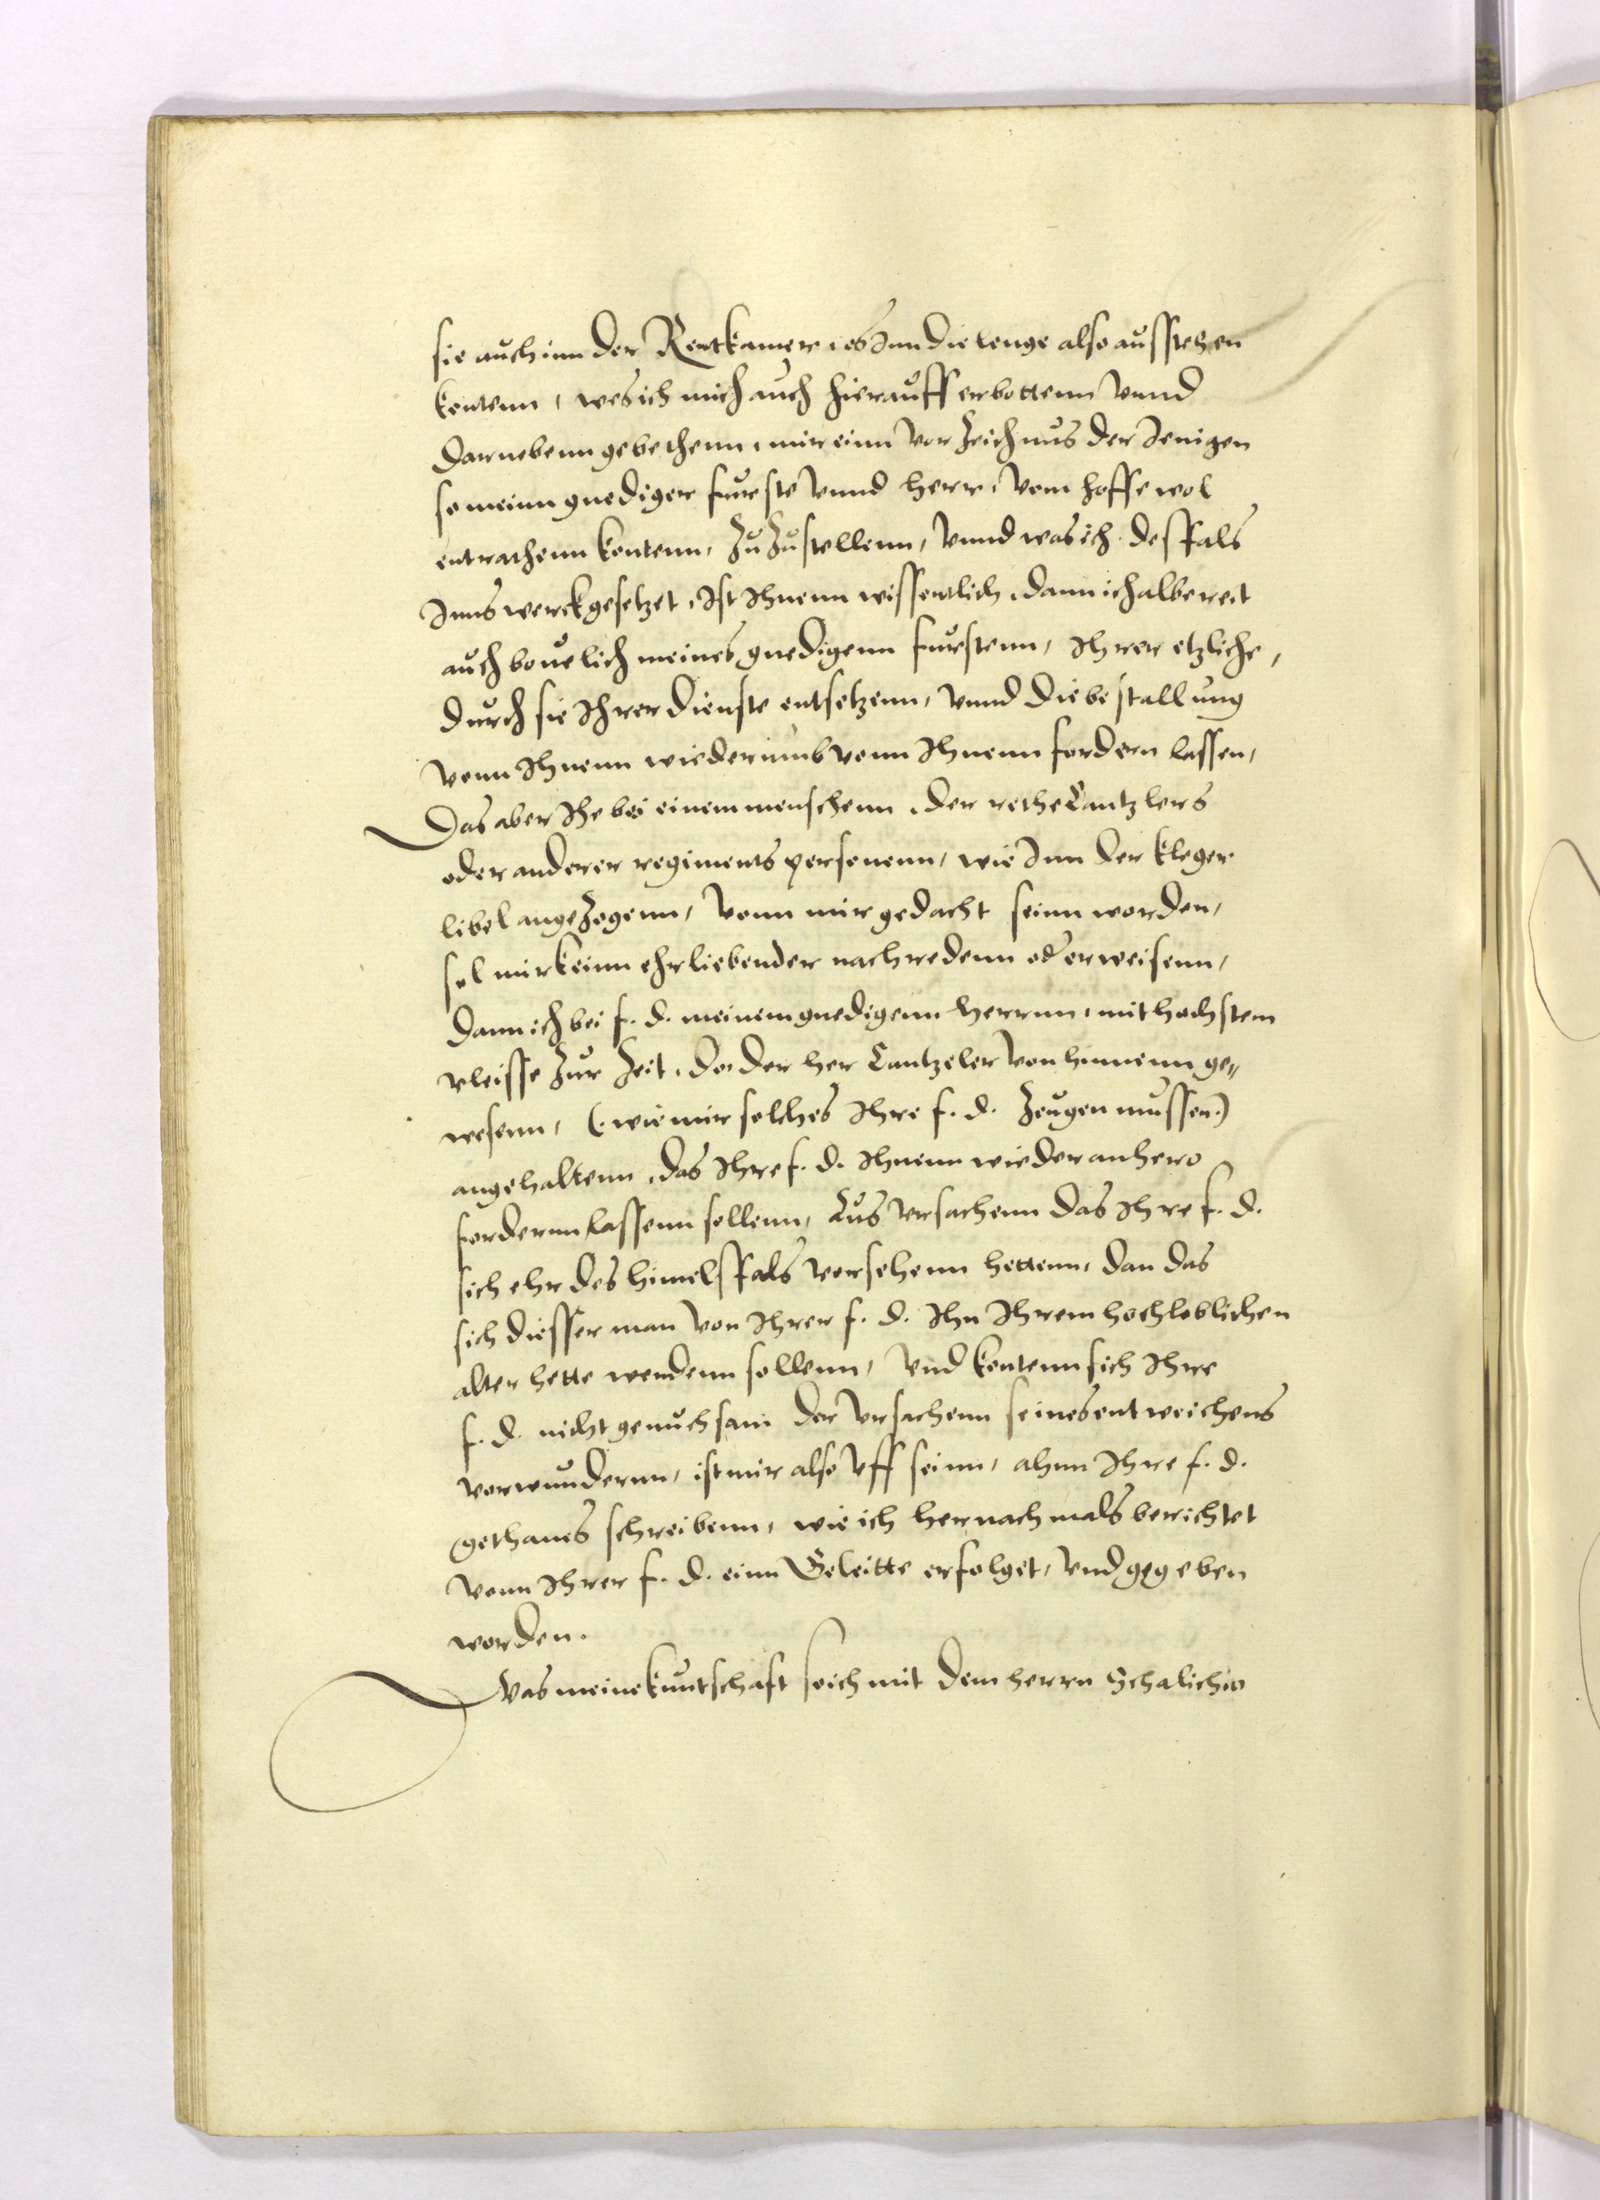 sie auch inn der Rentkamer, es Inn die lenge also ausstehen
kontenn, wes ich mich auch hierauff erbottenn vnnd
darnebenn gebethenn, mir einn vorzeichnus der Jenigen
so meinn gnediger furste vnnd herr, vom hoffe wol
entrathenn kontenn, zuzustellenn, vnnd was ich desfals
Inns werck gesetzet, Ist Ihnenn wissentlich, dann ich albereit
auch beuelich meines gnedigenn furstenn, Ihrer etzliche,
durch sie Ihrer dienste entsetzenn, vnnd die bestallung
vonn Ihnenn wiederumb vonn Ihnenn fordern lassen,
Das aber Ihe bei einem menschenn, der rethe Cantzlers
oder anderer regiments personenn, wie Inn der kleger
libel angezogenn, vonn mir gedacht seinn worden,
sol mir keinn ehrliebender nachredenn oder weisenn,
dann ich bei f. d. meinem gnedigenn herrnn, mit hochstem
vleisse zur zeit, do der her Cantzeler von hinnenn ge„
wesenn, (wie mir solches Ihre f. d. zeugen mussen)
angehaltenn, das Ihre f. d. Ihnenn wieder anhero
fordernn lassenn sollenn, Aus vrsachenn das Ihre f. d.
sich ehr des himelsfals vorsehenn hettenn, dan das
sich diesser man von Ihrer f. d. Ihn Ihrem hochloblichen
alter hette wendenn sollenn, vnd kontenn sich Ihre
f. d. nicht genuchsam der vrsachenn seines entweichens
vorwundernn, ist mir also vff seinn, ahnn Ihre f. d.
gethanes schreibenn, wie ich hernachmals berichtet
vonn Ihrer f. d. einn Geleitte erfolget, vnd gegeben
worden.
Was meine kuntschaft so ich mit dem herrn Schalichio